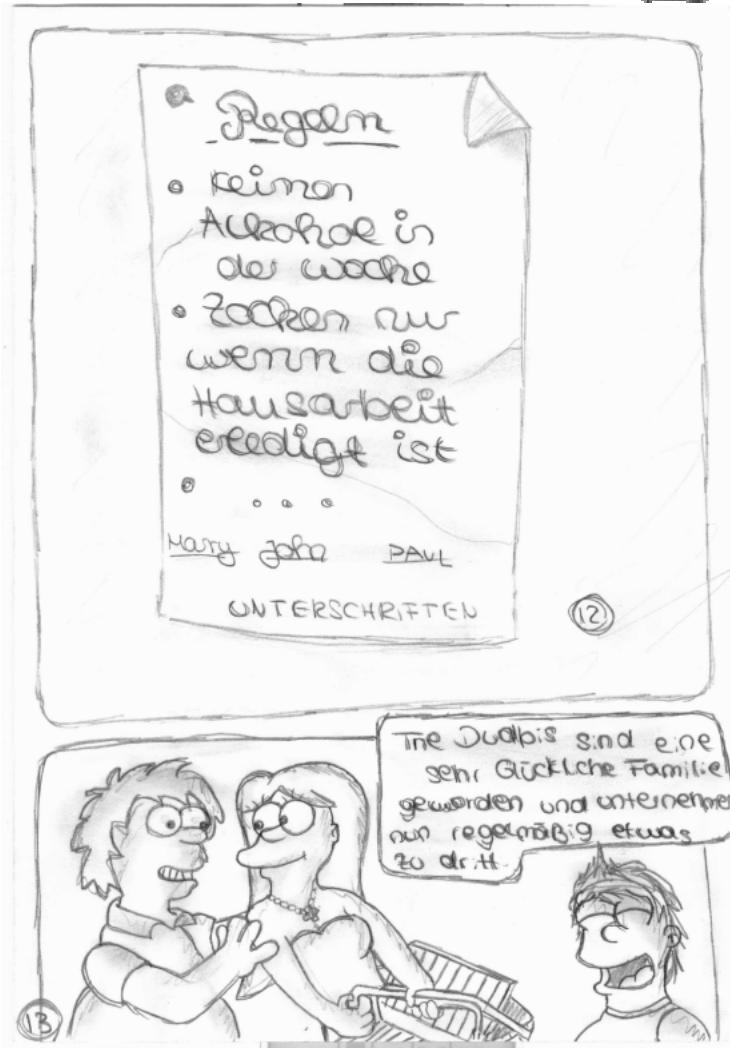 Regeln
• Keinen
Alkohol in
der woche
• Zocken nur
wenn die
Hausarbeit
erledigt ist
• ...
Mary John PAUL
UNTERSCHRIFTEN
12
The Dudbis sind eine
sehr Glückliche Familie
geworden und unternehmen
nun regelmäßig etwas
zu dritt.
13